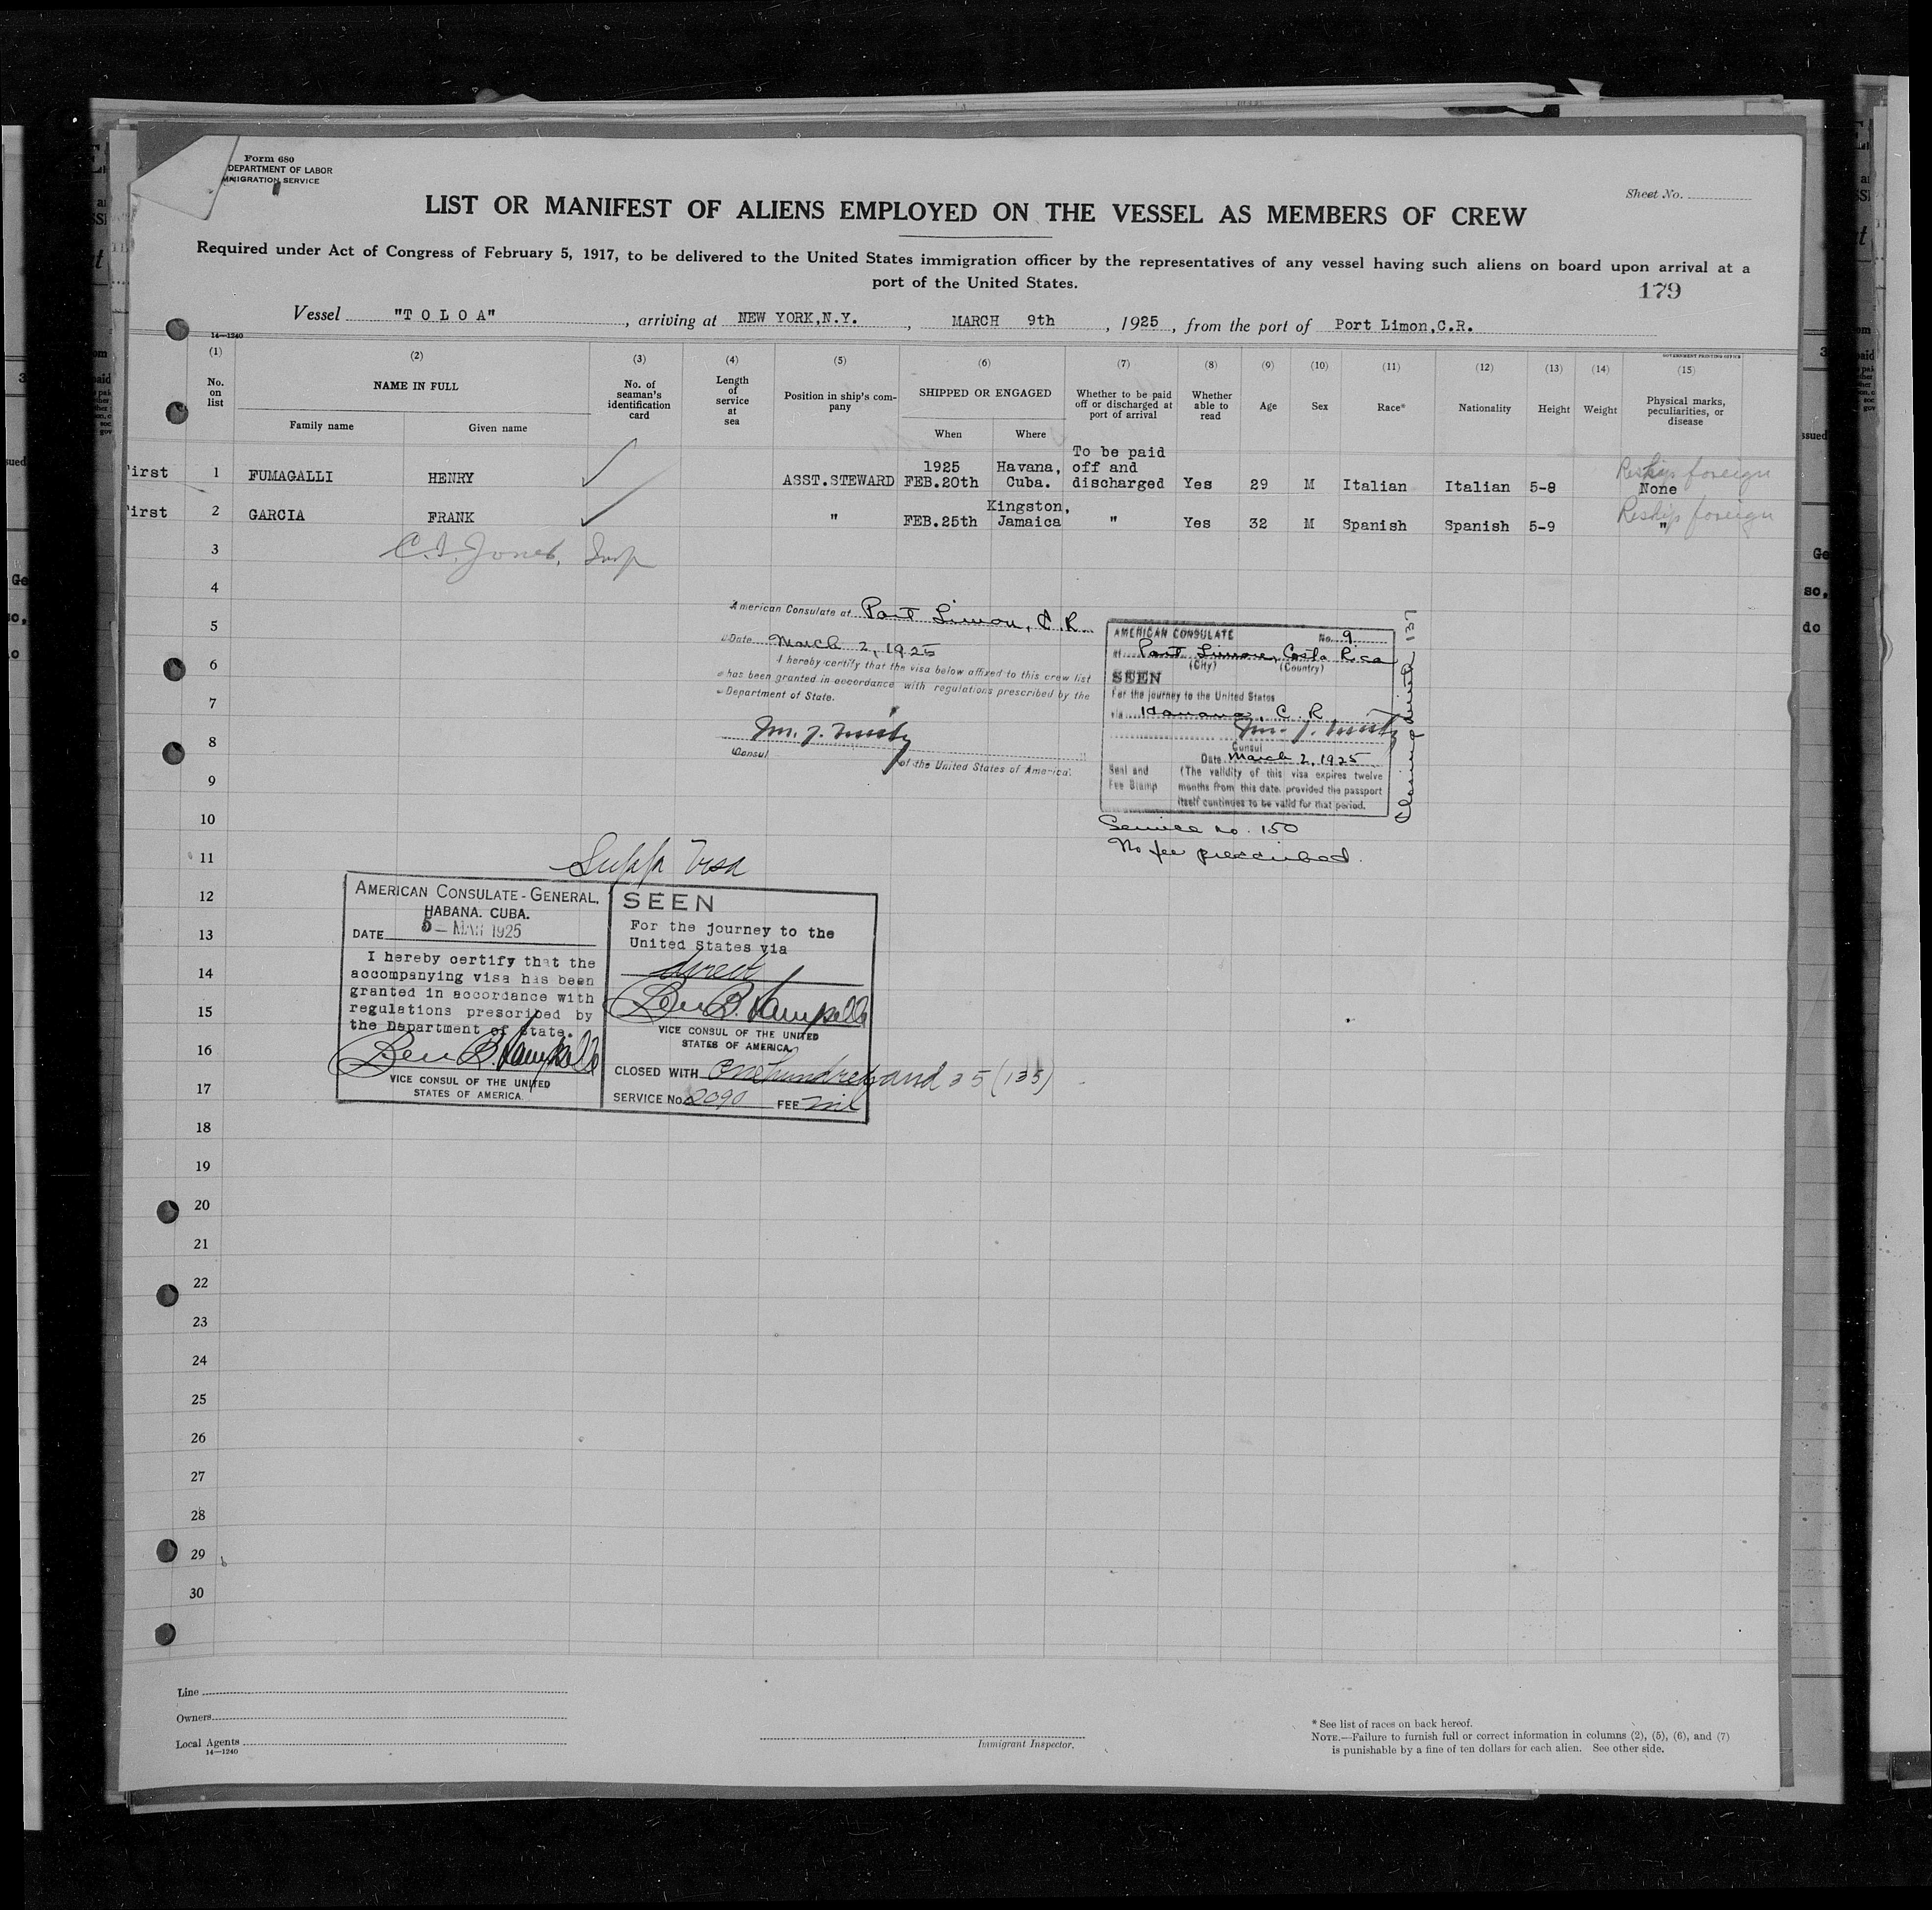 Form 680
DEPARTMENT OF LABOR
MMIGRATION SERVICE
Sheet No.
LIST OR MANIFEST OF ALIENS EMPLOYED ON THE VESSEL AS MEMBERS OF CREW
Required under Act of Congress of February 5, 1917, to be delivered to the United States immigration officer by the representatives of any vessel having such aliens on board upon arrival at a
port of the United States.
179
Vessel "T O L O A", arriving at NEW YORK,N.Y., MARCH 9th, 1925, from the port of Port Limon,C.R.
14—1240
GOVERNMENT PRINTING OFFICE
(1) (2) (3) (4) (5) (6) (7) (8) (9) (10) (11) (12) (13) (14) (15)
No. on list
NAME IN FULL
Family name
Given name
No. of seaman's identification card
Length of service at sea
Position in ship's company
SHIPPED OR ENGAGED
When
Where
Whether to be paid off or discharged at port of arrival
Whether able to read
Age
Sex
Race*
Nationality
Height
Weight
Physical marks, peculiarities, or disease
irst 1 FUMAGALLI HENRY ASST.STEWARD 1925 FEB.20th Havana, Cuba. To be paid off and discharged Yes 29 M Italian Italian 5-8 None Reship foreign
irst 2 GARCIA FRANK " FEB.25th Kingston, Jamaica " Yes 32 M Spanish Spanish 5-9 " Reship foreign
3
C.I. Jones, Insp
4
5
6
7
8
9
10
11
12
13
14
15
16
17
18
19
20
21
22
23
24
25
26
27
28
29
30
American Consulate at Port Limon, C.R.
Date March 2, 1925
I hereby certify that the visa below affixed to this crew list
has been granted in accordance with regulations prescribed by the
Department of State.
Consul
of the United States of America.
AMERICAN CONSULATE No. 9
at Port Limon, Costa Rica
(City) (Country)
SEEN
For the journey to the United States
via Havana, C. R.
Consul
Date March 2, 1925
Seal and Fee Stamp
(The validity of this visa expires twelve
months from this date, provided the passport
itself continues to be valid for that period.
137
Service no. 150
No fee prescribed.
Supp Visa
AMERICAN CONSULATE-GENERAL,
HABANA. CUBA.
DATE 5 — MAR 1925
I hereby certify that the
accompanying visa has been
granted in accordance with
regulations prescribed by
the Department of State.
VICE CONSUL OF THE UNITED
STATES OF AMERICA
SEEN
For the journey to the
United States via
direct
VICE CONSUL OF THE UNITED
STATES OF AMERICA
CLOSED WITH One hundred and 35 (135)
SERVICE No. 2090 FEE nil
Line
Owners
Local Agents
14—1240
Immigrant Inspector.
* See list of races on back hereof.
NOTE.—Failure to furnish full or correct information in columns (2), (5), (6), and (7)
is punishable by a fine of ten dollars for each alien. See other side.